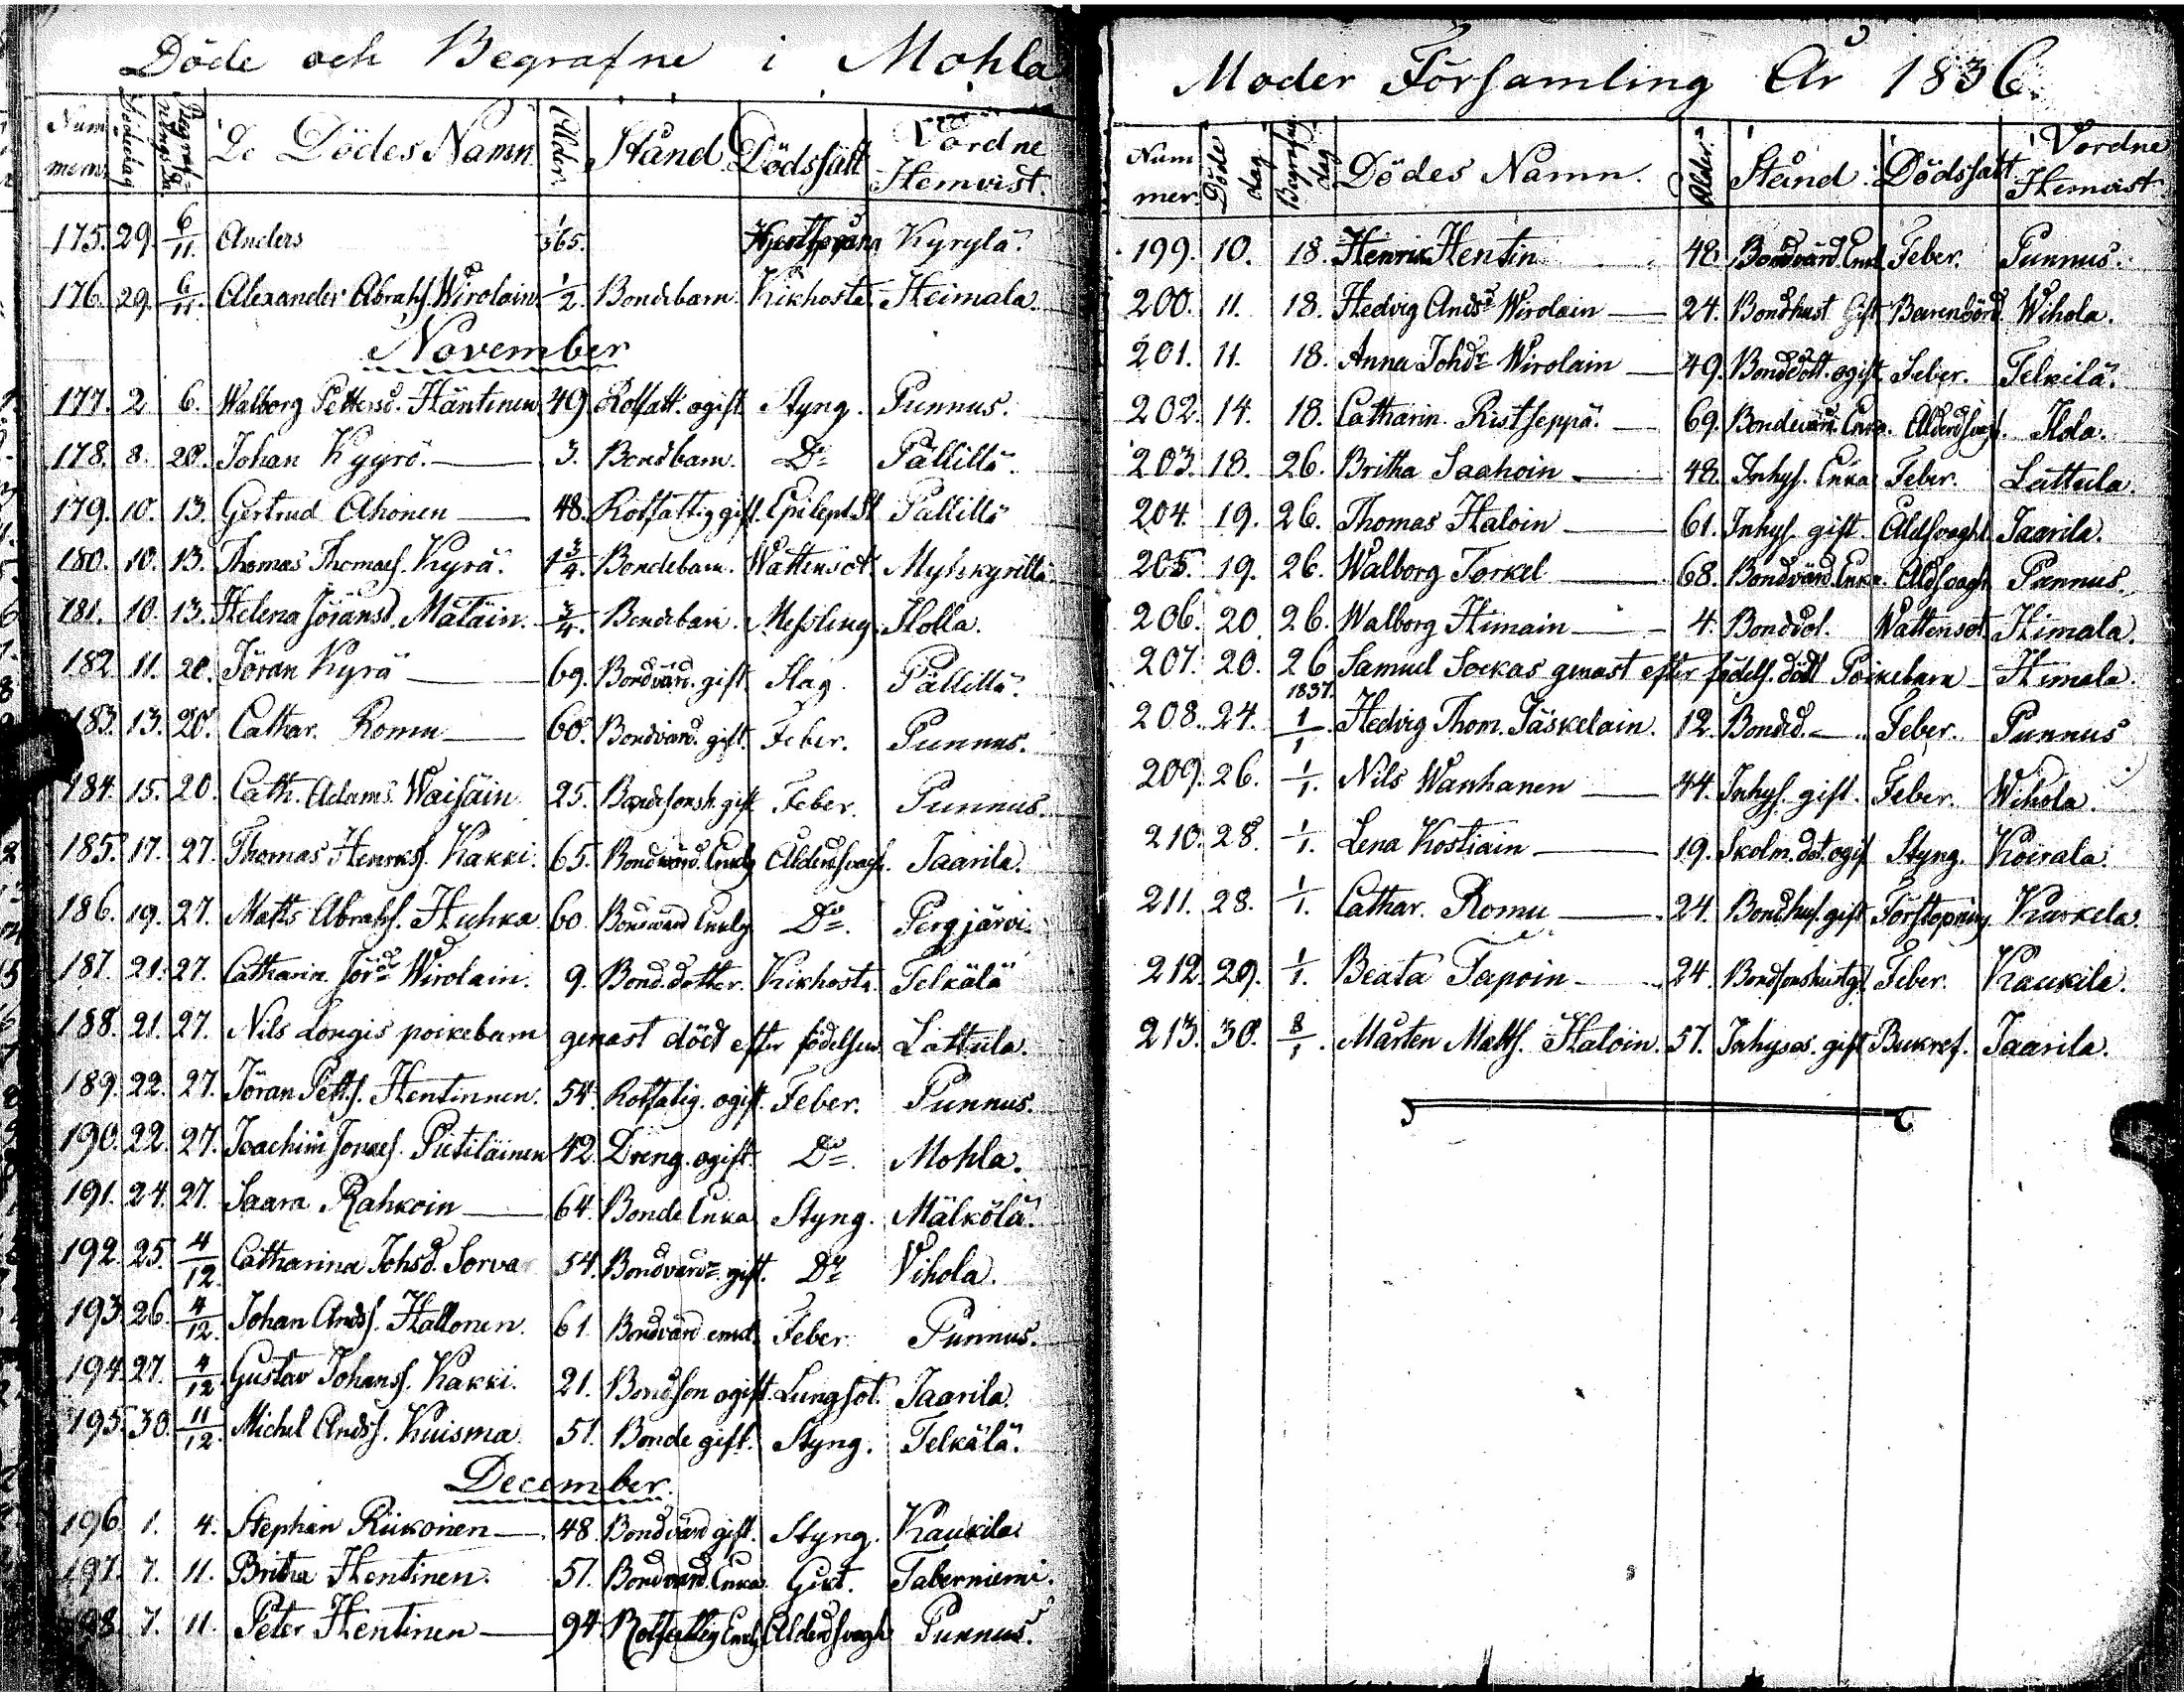 Döde och Begrafne i Mohla
Nummer. Dödsdag Begrafnings Da. De Dödes Namn Ålder. Stånd Dödssätt Vordne Hemvist.
175. 29. 6/11. Anders 65. Kyrylä.
176. 29. 6/11. Alexander Abrahs. Wirolain. 1/2. Bondebarn. Kikhosta. Heimala.
November
177. 2 6. Walborg Pettersd. Häntinen 49 Rotfatt. ogift Styng. Punnus.
178. 8. 20. Johan Kyyrö. 3. Bondbarn. Do Pällillä.
179. 10. 13. Gertrud Ahonen 48. Rotfattig gift. Epilept. Sl Pällillä
180. 10. 13. Thomas Thomass. Kyrä. 1 3/4. Bondebarn. Wattensot. Myhkyrillä.
181. 10. 13. Helena Jöransd. Mätäin. 3/4. Bondebarn. Messling. Holla.
182 11. 20. Jöran Kyrä 69. Bondvärd. gift. Slag. Pällillä.
183. 13. 20. Cathar. Romu 60. Bondvärd. gift. Feber. Punnus.
184. 15. 20. Cath. Adams. Waisäin 25. Bondesonsh. gift Feber. Punnus.
185. 17. 27. Thomas Henrks. Kakki. 65. Bondvärd. Enklg Alderdsvagh. Jaarila.
186. 19. 27. Matts Abrahs. Huhka 60 Bondvärd Enklg Do. Pergjärvi.
187. 21. 27. Catharin. Jörd Wirolain. 9. Bond.dotter. Kikhosta. Telkälä
188. 21. 27. Nils Longis poikebarn genast död efter födelsen Lättula.
189. 22. 27. Jöran Petts. Hentinnen. 54. Rotfatig. ogift. Feber. Punnus.
190. 22. 27. Joachim Jonass. Pietiläinen 42. Dreng. ogift. Do. Mohla.
191. 24. 27. Saara Rahkoin 64. Bonde Enka Styng. Mälkölä.
192. 25. 4/12. Catharina Johsd. Sorva 54. Bondvärd. gift. Do Vihola.
193. 26. 4/12. Johan Ands. Hallonen. 61 Bondvärd Feber. Punnus.
194. 27. 4/12 Gustav Johanss. Kakki. 21. Bondson ogift. Lungsot. Jaarila.
195. 30. 11/12. Michel Ands. Kuisma 51. Bonde gift. Styng. Telkälä.
December.
196. 1. 4. Stephan Riikonen 48. Bondvärd gift. Styng. Kaukila
197. 7. 11. Britha Hentinen. 57. Bondvärd. Enka Gikt. Taberniemi.
198. 7. 11. Peter Hentinen 94 Rotfattig Enkl Alderdsvagh Punnus.
Moder Församling År 1836.
Nummer. Döde dag Begrafng dag Dödes Namn. Ålder. Stånd. Dödssatt Vordne Hemvist
199. 10. 18. Henrik Hentin 48. Bondvärd. Enkl Feber. Punnus.
200. 11. 18. Hedvig Andsd Wirolain 24. Bondhust Gift Barnbörd Wihola.
201. 11. 18. Anna Johdr Wirolain 49. Bonddott. ogift Feber. Telkilä.
202. 14. 18. Catharin. Ristseppä. 69. Bondevärd. Enka. Alderdsvagh. Ilola.
203. 18. 26. Britha Saahoin 48. Inhys. Enka Feber. Lättula.
204. 19. 26. Thomas Haloin 61. Inhys. gift. Aldsvaght. Jaarila.
205. 19. 26. Walborg Torkel 68. Bondvärd. Enka. Aldsvagh Punnus.
206. 20 26. Walborg Himain 4. Bonddot. Wattensot. Himala.
207. 20. 26 Samuel Sockas genast efter födels. död Poikebarn Himala.
208. 24. 1837. 1/1 Hedvig Thom. Jäskelain. 12. Bondd. Feber. Punnus
209. 26. 1/1. Nils Wanhanen 44. Inhys. gift. Feber. Wihola.
210. 28. 1/1. Lena Kostiain 19. Skolm. dot. ogif Styng. Koirala.
211. 28. 1/1. Cathar. Romu 24. Bondhus. gift Förstopning Kurkela.
212. 29. 1/1. Beata Tapoin 24. Bondsonshust g. Feber. Kaukila.
213. 30. 8/1. Mårten Matts. Haloin. 57. Inhyses. gift Bukref. Jaarila.